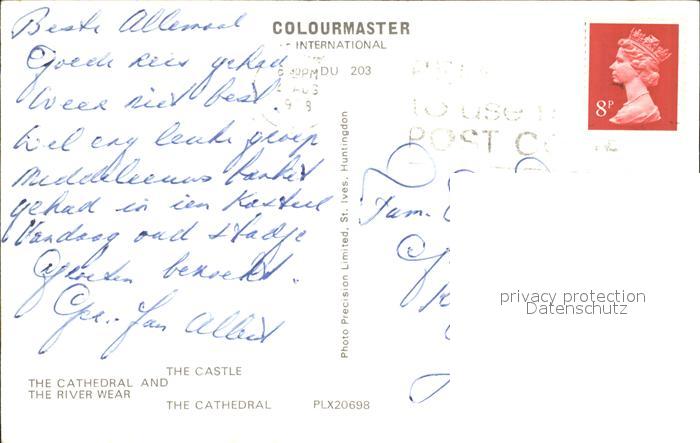 Beste Allemaal
Goede reis gehad
Weer niet best.
Wel erg leuke groep
Middeleeuws banket
gehad in een Kasteel
Vandaag oud stadje
Groeten bezocht.
Gr. Jan Albert
COLOURMASTER
INTERNATIONAL
PM DU 203
AUG
to use
POST CO
8P
Photo Precision Limited, St. Ives, Huntingdon
Fam.
privacy protection
Datenschutz
THE CASTLE
THE CATHEDRAL AND
THE RIVER WEAR
THE CATHEDRAL PLX20698